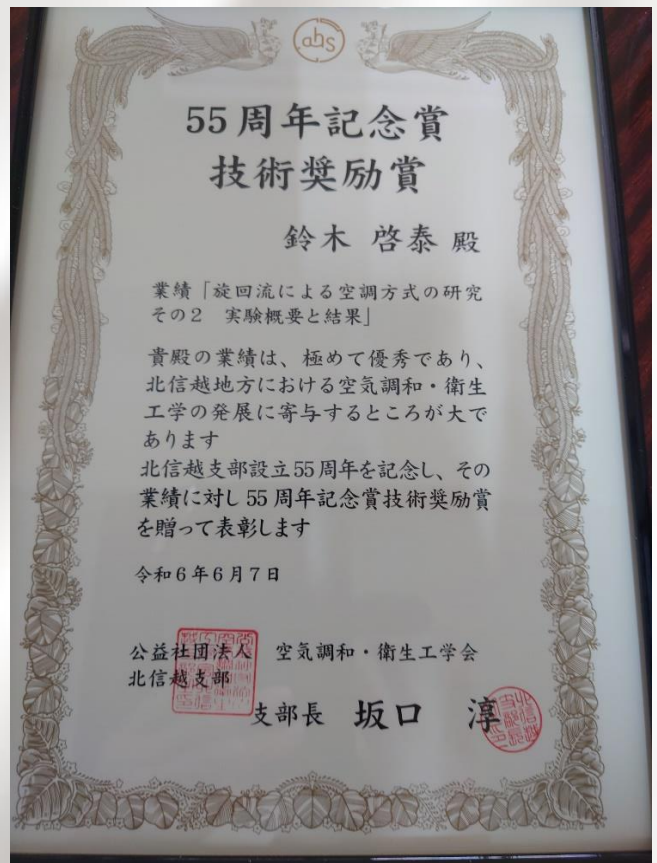 abs
55周年記念賞
技術奨励賞
鈴木 啓泰 殿
業績「旋回流による空調方式の研究
その2 実験概要と結果」
貴殿の業績は、極めて優秀であり、
北信越地方における空気調和・衛生
工学の発展に寄与するところが大で
あります
北信越支部設立55周年を記念し、その
業績に対し55周年記念賞技術奨励賞
を贈って表彰します
令和6年6月7日
公益社団法人 空気調和・衛生工学会
北信越支部
支部長 坂口 淳